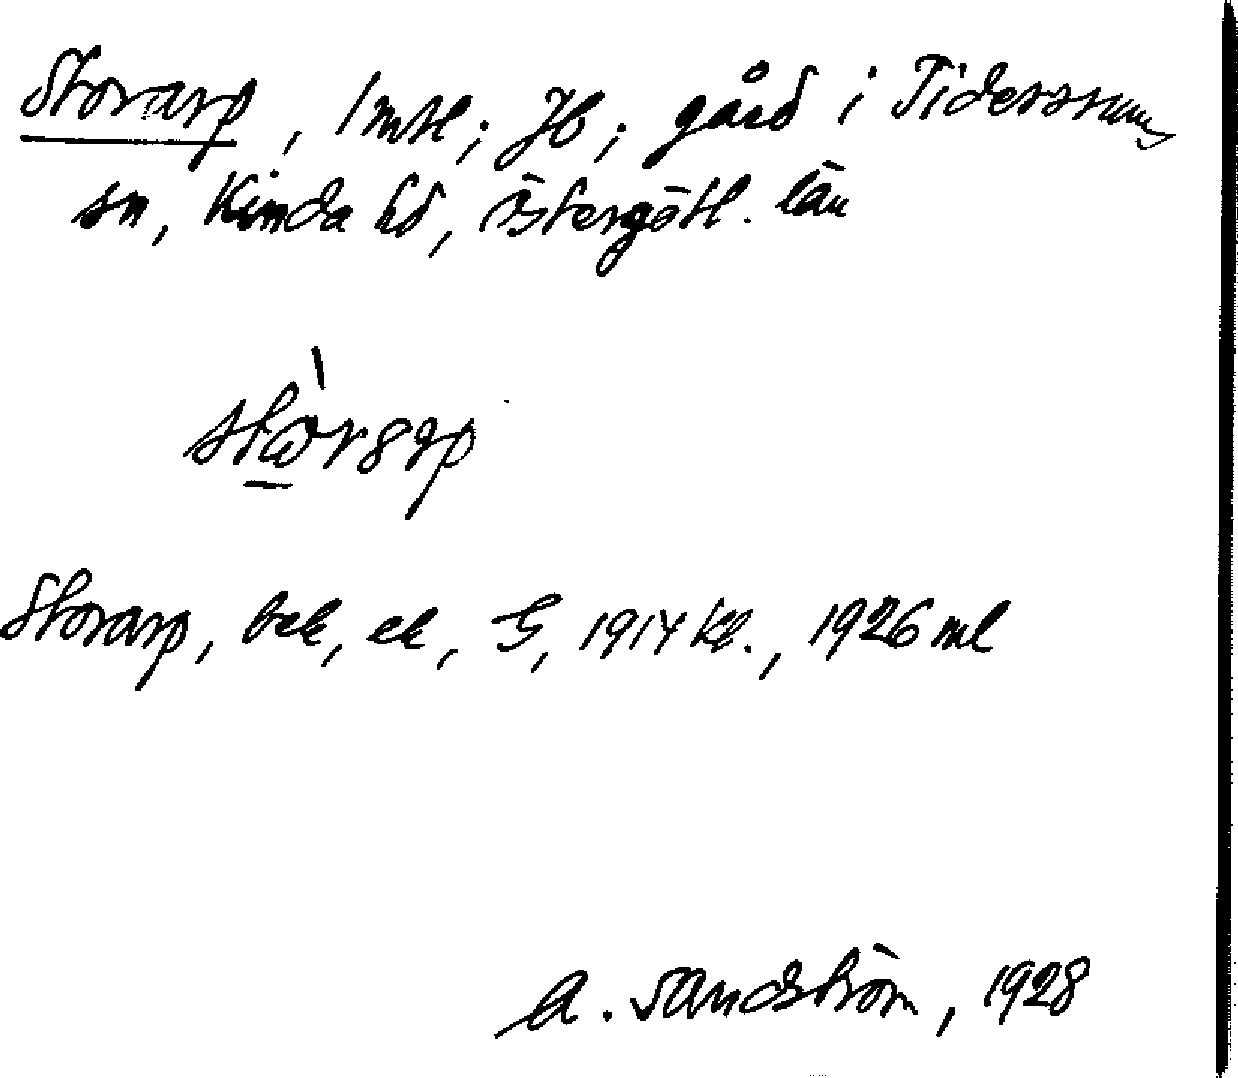 Storarp, 1 mtl; Jb; gård i Tidersrums
sn, Kinda hd, Östergötl. län
Storarp, bek, ek, G, 1914 kl., 1926 ml
A. Sandström, 1928